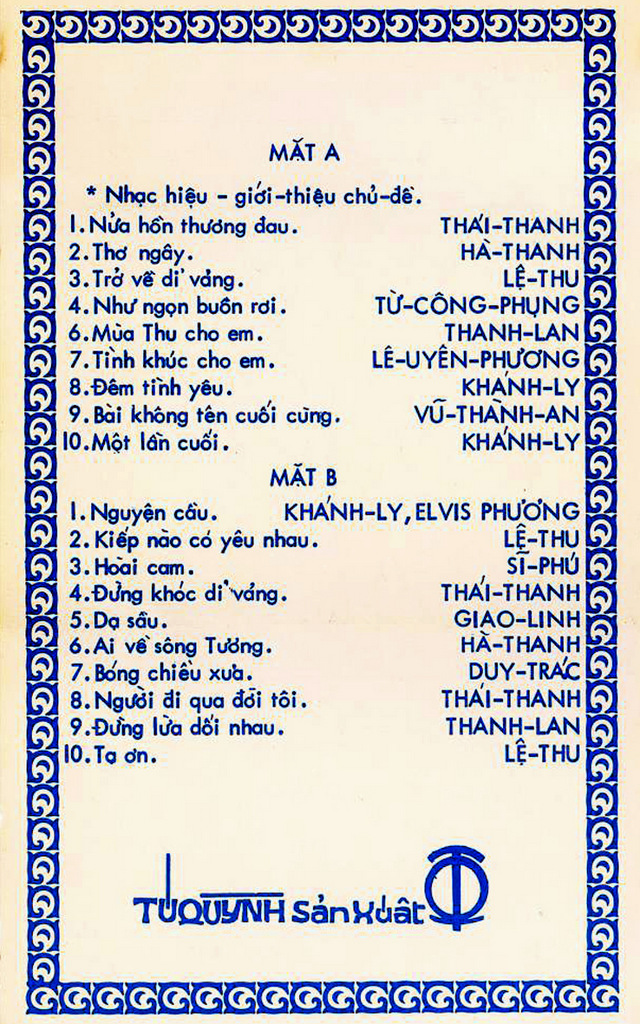 MẶT A
* Nhạc hiệu - giới-thiệu chủ-đề.
1. Nửa hồn thương đau. THÁI-THANH
2. Thơ ngây. HÀ-THANH
3. Trở về dĩ vãng. LỆ-THU
4. Như ngọn buồn rơi. TỪ-CÔNG-PHỤNG
6. Mùa Thu cho em. THANH-LAN
7. Tình khúc cho em. LÊ-UYÊN-PHƯƠNG
8. Đêm tình yêu. KHÁNH-LY
9. Bài không tên cuối cùng. VŨ-THÀNH-AN
10. Một lần cuối. KHÁNH-LY
MẶT B
1. Nguyện cầu. KHÁNH-LY, ELVIS PHƯƠNG
2. Kiếp nào có yêu nhau. LỆ-THU
3. Hoài cảm. SĨ-PHÚ
4. Đừng khóc dĩ vãng. THÁI-THANH
5. Dạ sầu. GIAO-LINH
6. Ai về sông Tương. HÀ-THANH
7. Bóng chiều xưa. DUY-TRÁC
8. Người đi qua đời tôi. THÁI-THANH
9. Đừng lừa dối nhau. THANH-LAN
10. Tạ ơn. LỆ-THU
TÚ QUỲNH Sản Xuất